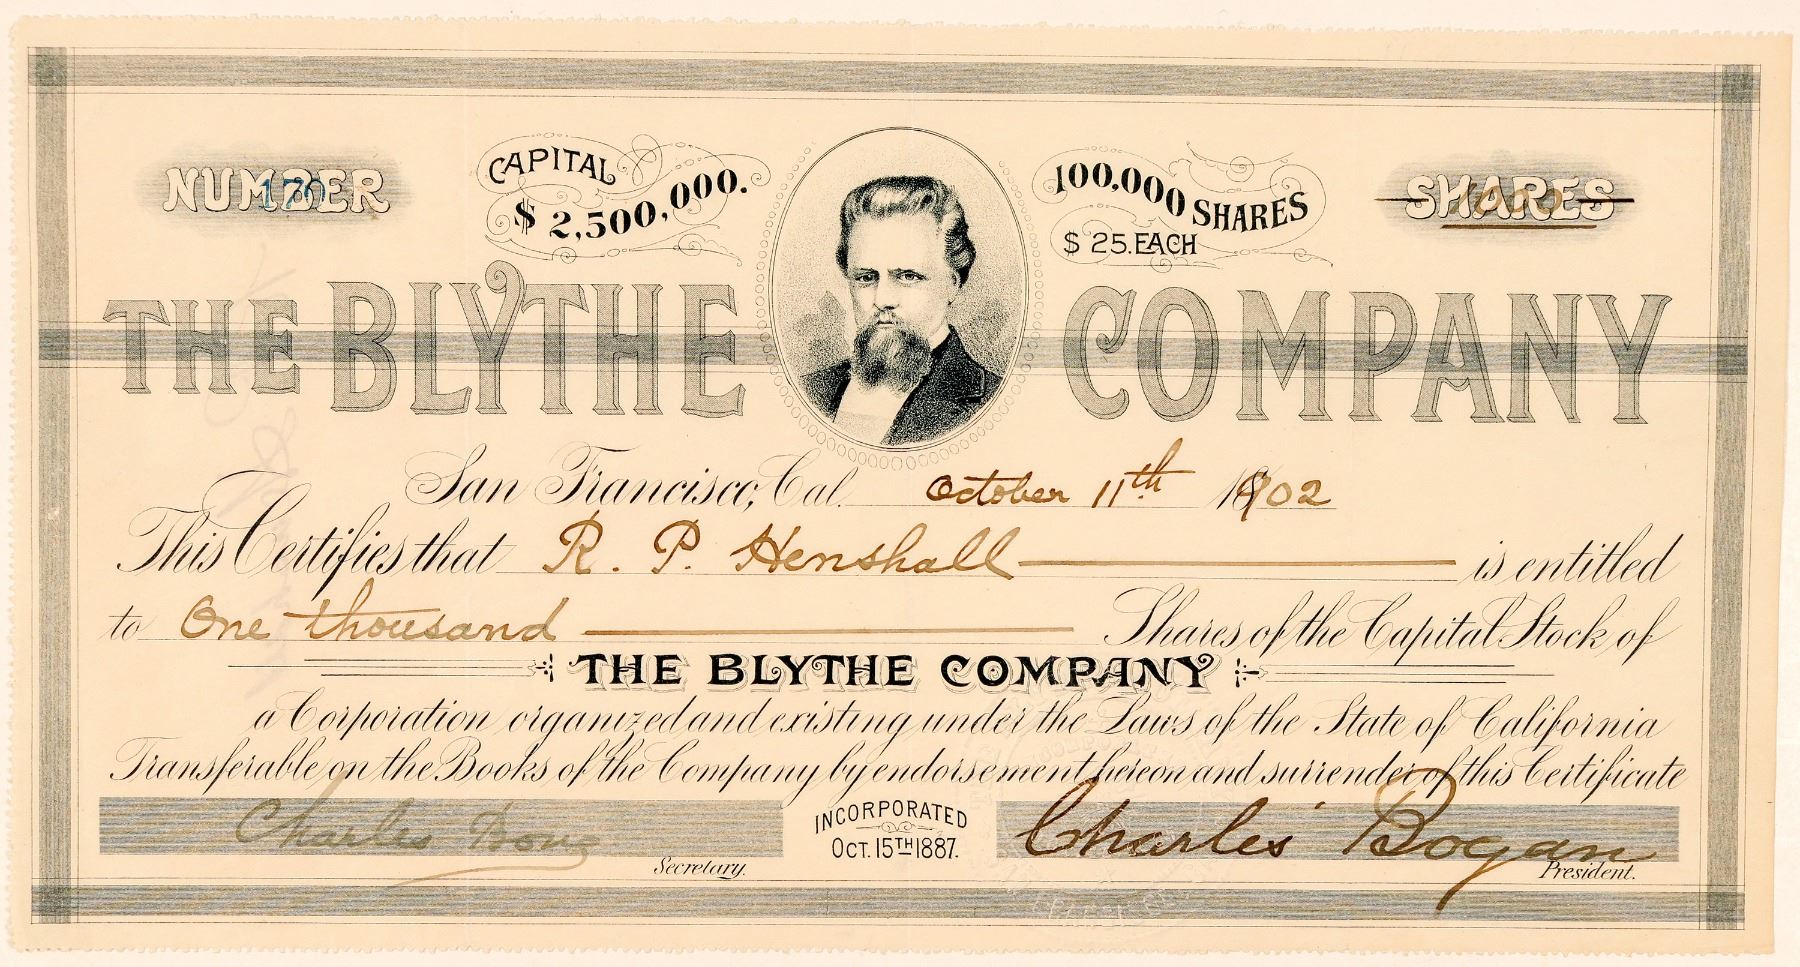 NUMBER 170
CAPITAL
$ 2,500,000.
100,000 SHARES
$ 25. EACH
SHARES 1000
THE BLYTHE COMPANY
San Francisco, Cal. October 11th 1902
This Certifies that R. P. Henshall is entitled
to One thousand Shares of the Capital Stock of
THE BLYTHE COMPANY
a Corporation organized and existing under the Laws of the State of California
Transferable on the Books of the Company by endorsement hereon and surrender of this Certificate
Charles
Secretary.
INCORPORATED
OCT. 15TH 1887.
Charles Bogan
President.